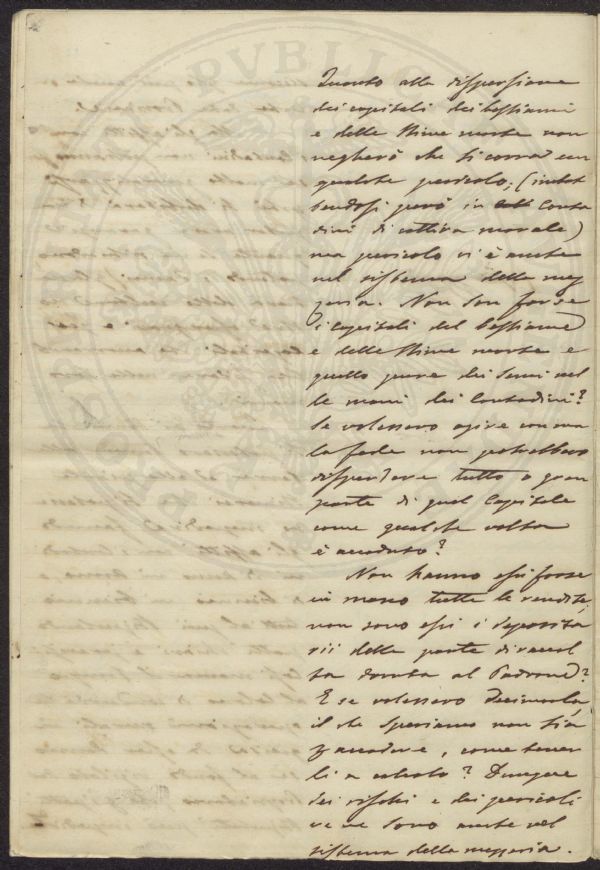 PVBLIC
Quanto alla dispersione
dei capitali dei bestiami
e delle stime morte non
negherò che si corra con
qualche pericolo; (imbat
tendosi però in Conta
dini di cattiva morale)
ma pericolo vi è anche
nel sistema della mez
zeria. Non son forse
i capitali del bestiame
e delle stime morte e
quello pure dei semi nel
le mani dei Contadini?
Se volessero agire con ma
la fede non potrebbero
disperdere tutto o gran
parte di quel Capitale
come qualche volta
è accaduto?
Non hanno essi forse
in mano tutte le rendite,
non sono essi i deposita
rii della parte di racol
ta dovuta al Padrone?
E se volessero decimarla,
il che speriamo non sia
accadere, come tener
li a calcolo? Dunque
dei rischi e dei pericoli
ve ne sono anche nel
sistema della mezzeria.